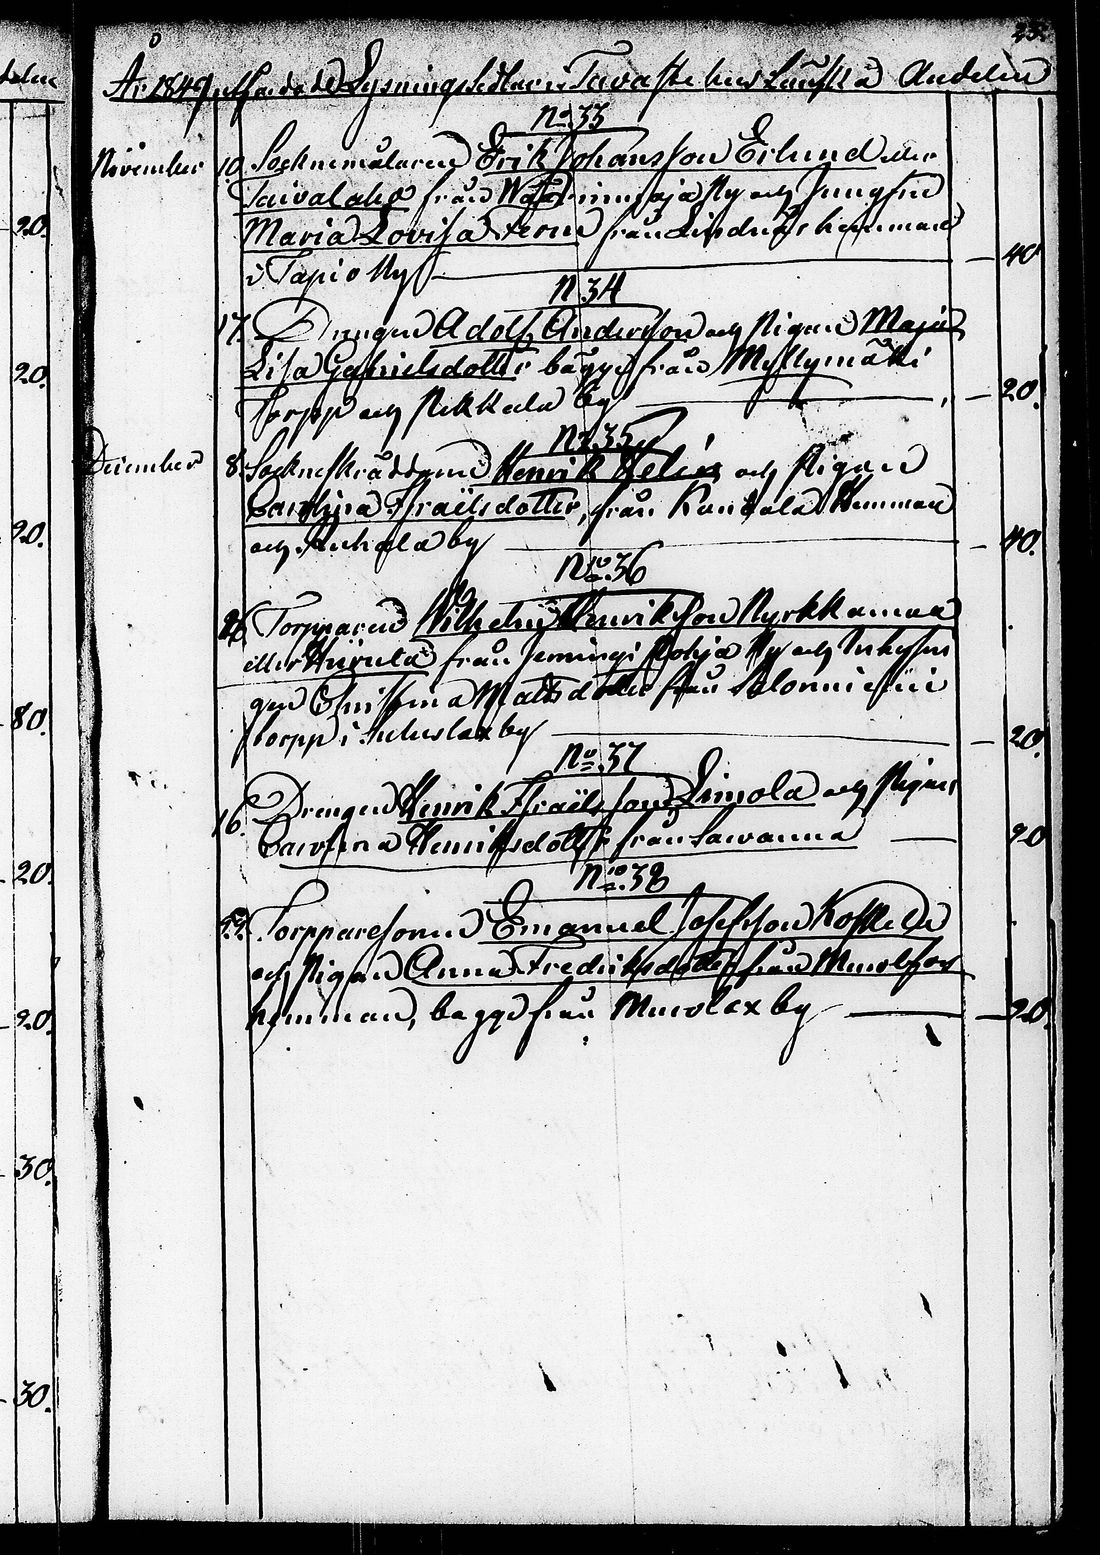 25.
År 1849 utfärdade Lysningssedlar i Tavastehus Länsk å Andelen
No. 33
November 10. Socknemålaren Erik Johansson Erlund eller
Taivalaho från by och Jungfru
20.
Maria Lovisa från Lindnäs hemman
i Tapio by 40
N 34
17. Drengen Adolf Andersson och Pigan Maja
Lisa Gabrielsdotter bägge från Myllymäki
20.
Torpp och Pekkala by 20.
No. 35
December 8. Sockneskräddaren Henrik Helin och Pigan
Carolina Israëlsdotter, från Kuntola Hemman
20.
och by 40.
No. 36
Torpparen Wilhelm Henriksson Nyrkkamaa
eller Hurula från by och Inhysin
gen Christina Mattsdotter från
80.
torpp i by 20.
No. 37
16. Drengen Henrik Israëlsson Simola och Pigan
Carolina Henriksdotter från Sawanna 20
20.
No. 38
Torpparesonen Emanuel Josefsson Koskela
och Pigan Anna Fredriksdotter från
20.
hemman, bägge från Muolax by 20.
30.
30.